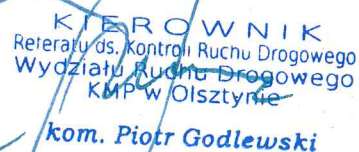 KIEROWNIK
Referatu ds. Kontroli Ruchu Drogowego
Wydziału Ruchu Drogowego
KMP w Olsztynie
kom. Piotr Godlewski